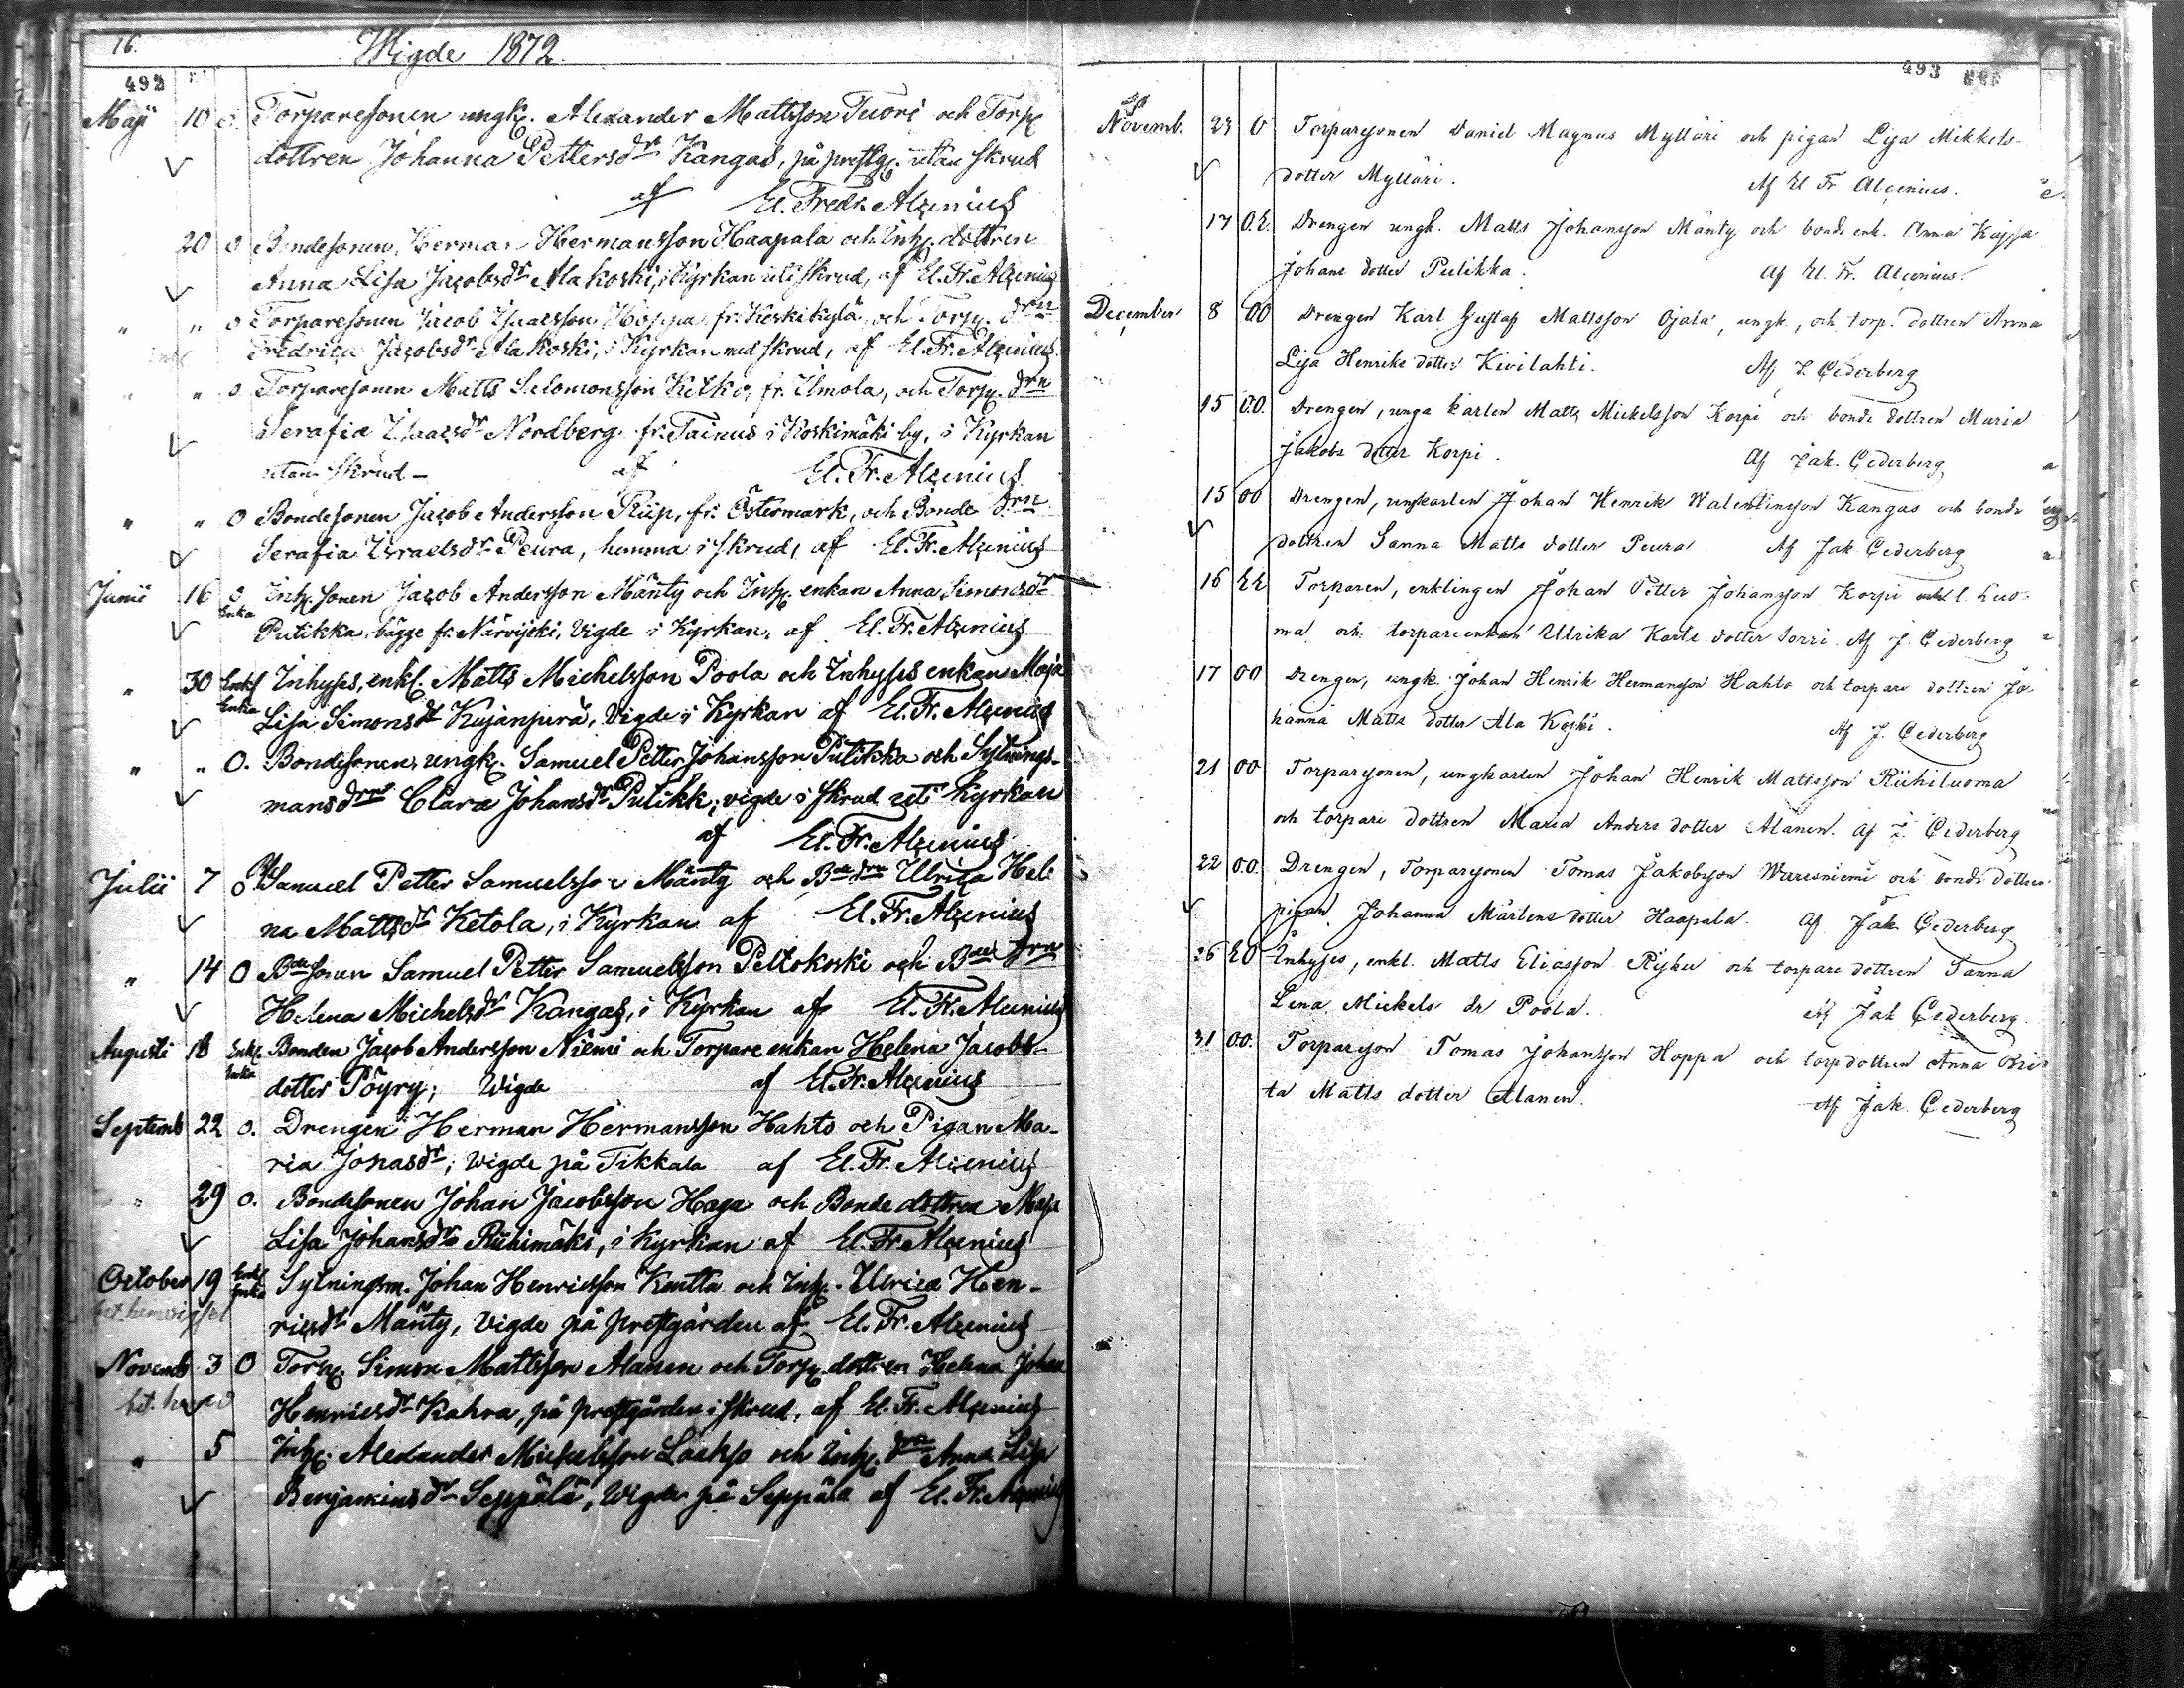 16.
Wigde 1872.
492
Maji 10 o. Torparesonen ungk. Alexander Mattsson Tuori och Torp.
dottren Johanna Pettersdr Kangas, på prestg. utan skrud
af El. Fredr. Alcenius
20 o Bondesonen, Herman Hermansson Haapala och Inh. dottren
Anna Lisa Jacobsdr Alakoski, i Kyrkan uti skrud, af El. Fr. Alcenius
" " o Torparesonen Jacob Isaacsson Hoppa fr. Keskikylä, och Torp. drn
Fredrica Jacobsdr Alakoski, i Kyrkan med skrud, af El. Fr. Alcenius
" " o Torparesonen Matts Salomonsson Ketko, fr. Ilmola, och Torp. drn
Serafia Isaacsdr Nordberg fr. Tainus i Koskimäki by, i Kyrkan
utan skrud - af El. Fr. Alcenius
" " o Bondesonen Jacob Andersson Riip, fr. Östermark, och Bonde drn
Serafia Israelsdr Peura, hemma i skrud, af El. Fr. Alcenius
Junii 16 o Enka Inh. sonen Jacob Andersson Mänty och Inh. enkan Anna Simonsdr
Putikka, bägge fr. Närvijoki, Vigde i Kyrkan, af El. Fr. Alcenius
" 30 Enkl Enka Inhyses, enkl. Matts Michelsson Poola och Inhyses enkan Maja
Lisa Simonsdr Kujanpää, Vigde i Kyrkan af El. Fr. Alcenius
" " O. Bondesonen, ungk. Samuel Petter Johansson Pulikka och Sytnings-
mansdrn Clara Johansdr Pulikk, vigde i skrud uti Kyrkan
af El. Fr. Alcenius
Julii 7 o Samuel Petter Samuelsson Mänty och Bde drn Ulrica Hele
na Mattsdr Ketola, i Kyrkan af El. Fr. Alcenius
" 14 O Bdesonen Samuel Petter Samuelsson Peltokoski och Bde drn
Helena Michelsdr Kangas, i Kyrkan af El. Fr. Alcenius
Augusti 18 Enkl. Enka Bonden Jacob Andersson Niemi och Torpare enkan Helena Jacobs-
dotter Pöyry; Wigde af El. Fr. Alcenius
Septemb 22 o. Drengen Herman Hermansson Hahto och Pigan Ma-
ria Jonasdr; Wigde på Tikkala af El. Fr. Alcenius
" 29 o. Bondesonen Johan Jacobsson Haga och Bonde dottren Maja
Lisa Johansdr Riihimäki, i Kyrkan af El. Fr. Alcenius
October 19 Enkl Enka Sytningsm. Johan Henricsson Kentta och Inh. Ulrica Hen-
ricsdr Mänty, Vigde på prestgården af El. Fr. Alcenius
Novemb 3 O Torp. Simon Mattsson Alanen och Torp. dottren Helena Johan
Henricsdr Kahra, på prestgården i skrud, af El. Fr. Alcenius
" 5 Inh. Alexander Mickelsson Laakso och Inh. drn Anna Lisa
Benjaminsdr Seppälä, Wigde på Seppäla af El. Fr. Alcenius
493
Novemb. 23 O Torparsonen Daniel Magnus Mylläri och pigan Lisa Mikkels-
dotter Mylläri. Af El Fr Alcenius.
17 O.E. Drengen ungk. Matts Johansson Mänty och bonde enk. Anna Kajsa
Johans dotter Pulikka. Af El. Fr. Alcenius.
December 8 OO Drengen Karl Gustaf Mattsson Ojala, ungk., och torp. dottren Anna
Lisa Henriks dotter Kivilahti. Af J. Cederberg
15 O.O. Drengen, unga karlen Matts Mickelsson Korpi och bonde dottren Maria
Jakobs dotter Korpi. Af Jak. Cederberg
15 OO Drengen, ungkarlen Johan Henrik Walentinsson Kangas och bonde
dottren Sanna Matts dotter Peura Af Jak Cederberg
16 EE Torparen, enklingen Johan Petter Johansson Korpi l. Luo-
ma och torpareenkan Ulrika Karls dotter Sorri Af J. Cederberg
17 OO Drengen, ungk. Johan Henrik Hermansson Hahto och torpare dottren Jo-
hanna Matts dotter Ala Koski. Af J. Cederberg
21 OO Torparsonen, ungkarlen Johan Henrik Mattsson Riihiluoma
och torpare dottren Maria Anders dotter Alanen. Af J. Cederberg
22 O.O. Drengen, Torparsonen Tomas Jakobsson Waresniemi och bonde dottren
pigan Johanna Mårtens dotter Haapala. Af Jak Cederberg
26 EO Inhyses, enkl. Matts Eliasson Ryhu och torpare dottren Sanna
Lena Mickels dr Poola. Af Jak Cederberg.
31 O.O. Torparson Tomas Johansson Hoppa och torpdottren Anna Bri-
ta Matts dotter Alanen. Af Jak. Cederberg